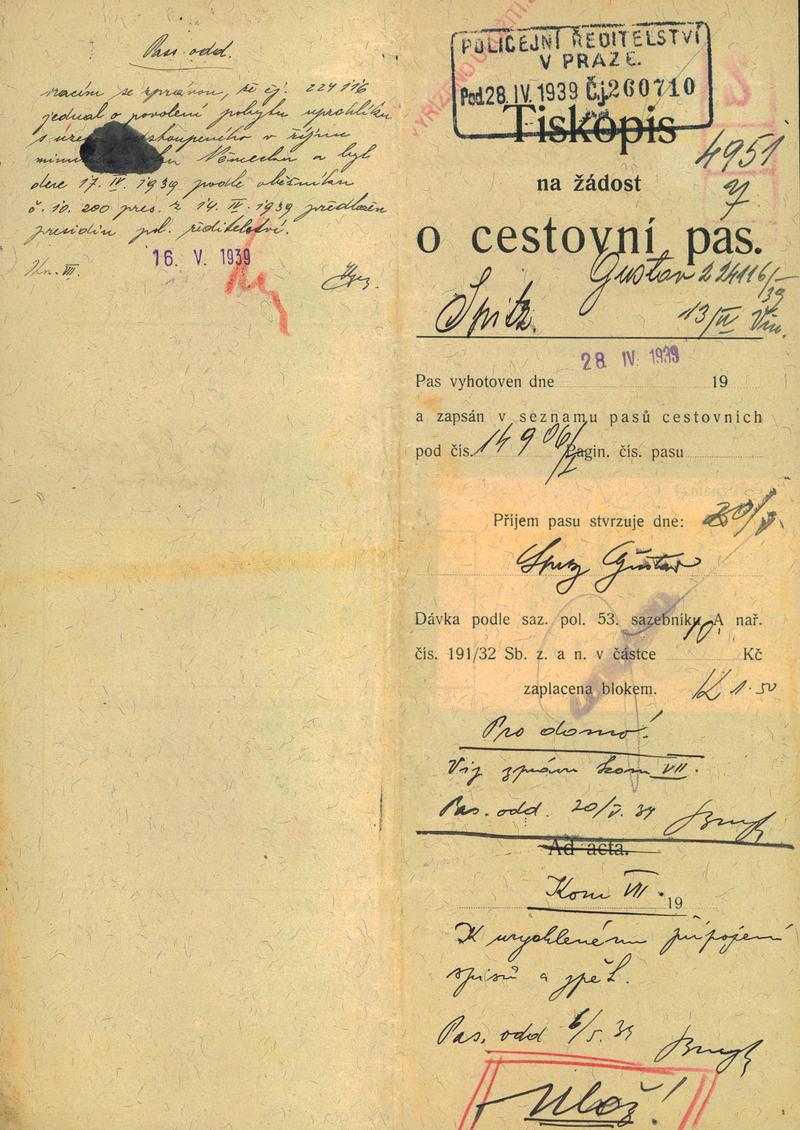 Pas. odd.
vracím se zprávou, že čj. 224116
jednal o povolení pobytu uprchlíku
s území odstoupeného v říjnu
Německu a byl
dne 17. IV. 1939 podle oběžníku
č. 10.200 pres. z 14. IV. 1939 předložen
presidiu pol. ředitelství.
16. V. 1939
POLICEJNÍ ŘEDITELSTVÍ
V PRAZE.
Pod 28. IV. 1939 Čj. 260710
Tiskopis
4951
na žádost
7
o cestovní pas.
Gustav 224116/39
Spitz.
13/IV
28. IV. 1939
Pas vyhotoven dne 19
a zapsán v seznamu pasů cestovních
pod čís. 14906/I Pagin. čís. pasu
Příjem pasu stvrzuje dne:
Spitz Gustav
Dávka podle saz. pol. 53. sazebníku A nař.
10.
čís. 191/32 Sb. z. a n. v částce Kč
zaplacena blokem. K 1.50
Pro domo!
Viz zprávu kom VII.
Pas. odd. 20/V. 39
Ad acta.
Kom VII. 19
K urychlenému připojení
spisů a zpět.
Pas. odd 6/5. 39
Ulož!